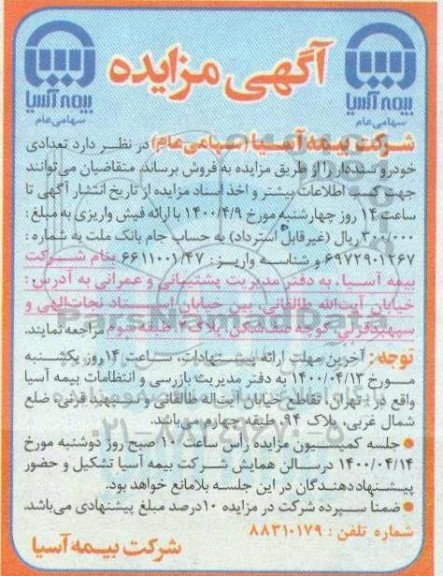 آگهی مزایده
بیمه آسیا
سهامی عام
بیمه آسیا
سهامی عام
شرکت بیمه آسیا (سهامی عام) در نظر دارد تعدادی
خودرو سنددار را از طریق مزایده به فروش برساند. متقاضیان می‌توانند
جهت کسب اطلاعات بیشتر و اخذ اسناد مزایده از تاریخ انتشار آگهی تا
ساعت ۱۴ روز چهارشنبه مورخ ۱۴۰۰/۴/۹ با ارائه فیش واریزی به مبلغ:
۳۰۰،۰۰۰ ریال (غیرقابل استرداد) به حساب جام بانک ملت به شماره:
۶۹۷۲۹۰۱۲۶۷ و شناسه واریز: ۶۶۱۱۰۰۱/۴۷ بنام شرکت
بیمه آسیا، به دفتر مدیریت پشتیبانی و عمرانی به آدرس:
خیابان آیت‌الله طالقانی، بین خیابان استاد نجات‌الهی و
سپهبدقرنی، کوچه صف‌شکن، پلاک ۲، طبقه سوم مراجعه نمایند.
توجه: آخرین مهلت ارائه پیشنهادات، ساعت ۱۴ روز یکشنبه
مورخ ۱۴۰۰/۰۴/۱۳ به دفتر مدیریت بازرسی و انتظامات بیمه آسیا
واقع در: تهران، تقاطع خیابان آیت‌اله طالقانی و سپهبد قرنی، ضلع
شمال غربی، پلاک ۹۴، طبقه چهارم می‌باشد.
● جلسه کمیسیون مزایده رأس ساعت ۱۰ صبح روز دوشنبه مورخ
۱۴۰۰/۰۴/۱۴ در سالن همایش شرکت بیمه آسیا تشکیل و حضور
پیشنهاددهندگان در این جلسه بلامانع خواهد بود.
● ضمناً سپرده شرکت در مزایده ۱۰ درصد مبلغ پیشنهادی می‌باشد.
شماره تلفن: ۸۸۳۱۰۱۷۹
شرکت بیمه آسیا
ParsNamadData